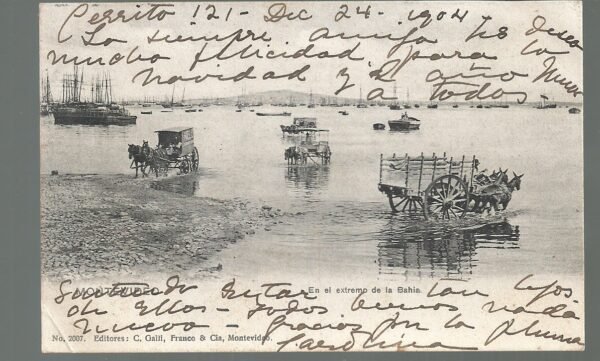 Cerrito 121 - Dec 24 - 1904
La siempre amiga les desea
mucho felicidad para la
navidad y el año nuevo
a todos.
MONTEVIDEO
En el extremo de la Bahia.
estar tan lejos
de Ellos - todos buenos nada
nuevo - Gracias por la pluma
Carolina
No. 2007. Editores: C. Galli, Franco & Cia, Montevideo.